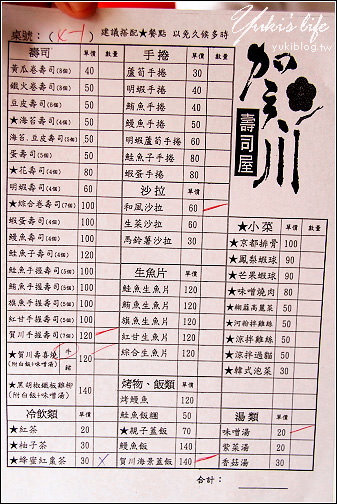 Yuki's life
yukiblog.tw
桌號：(K-1) 建議搭配★餐點 以免久候多時
加賀川
壽司屋
壽司 單價 數量
黃瓜卷壽司(8個) 40
鐵火卷壽司(8個) 50
豆皮壽司(6個) 50
★海苔壽司(4個) 50
海苔.豆皮壽司(5個) 50
蛋壽司(5個) 50
★花壽司(4個) 80
明蝦壽司(4個) 60
★綜合卷壽司(7個) 100
蝦蛋壽司(5個) 100
鰻魚壽司(5個) 100
鮭魚子壽司(4個) 120
鮭魚手握壽司(5個) 100
鮪魚手握壽司(5個) 100
旗魚手握壽司(5個) 100
紅甘手握壽司(5個) 100
賀川手握壽司(7個) 120
★賀川壽喜燒 牛 120
(附白飯+味噌湯) 豬
★黑胡椒鐵板雞柳 140
(附白飯+味噌湯)
冷飲類 單價
★紅茶 20
★柚子茶 30
★蜂蜜紅棗茶 30 X
手捲 單價 數量
蘆筍手捲 30
明蝦手捲 40
鮪魚手捲 40
鰻魚手捲 50
明蝦蘆筍手捲 60
鮭魚子手捲 80
蝦蛋手捲 80
沙拉 單價
和風沙拉 60
生菜沙拉 60
馬鈴薯沙拉 30
生魚片 單價
鮭魚生魚片
鮪魚生魚片
旗魚生魚片
紅甘生魚片
綜合生魚片
烤物、飯類 單價
烤鰻魚 120
鮭魚飯糰 50
★親子蓋飯 70
鰻魚飯 140
賀川海景蓋飯 140
★小菜 單價 數量
★京都排骨 100
★鳳梨蝦球 90
★芒果蝦球 90
★味噌燒肉 80
★椒蔴高麗菜 50
★河粉拌雞絲 50
★涼拌雞絲 50
★涼拌過貓 50
★韓式泡菜 30
湯類 單價
味噌湯 20
紫菜湯 20
香菇湯 30
合計：